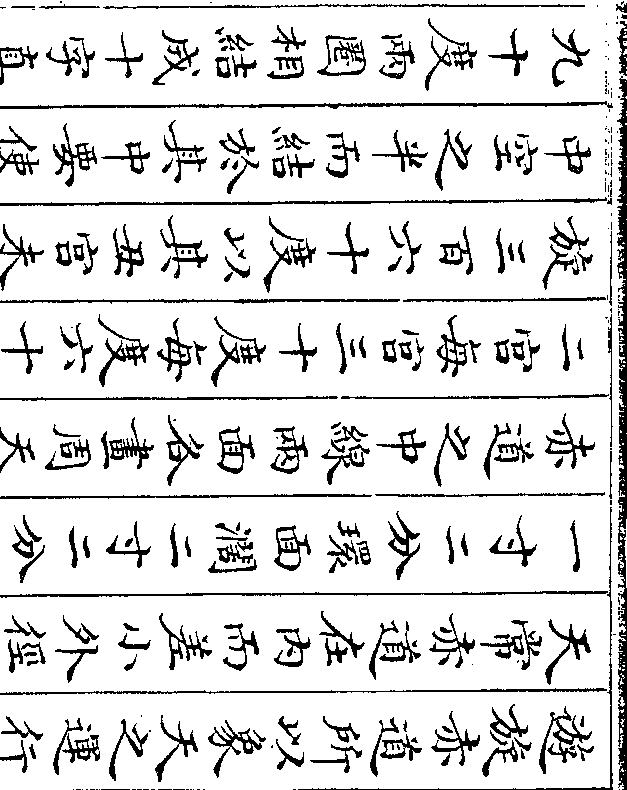 遊旋赤道所以象天之運行
天常赤道在内而差小外徑
一寸二分環面濶二寸二分
赤道之中線兩面各畫周天
二宮每宮三十度每度六十
旋三百六十度以其丑宮未
中空之半而結於其中要使
九十度兩圈相結成十字直